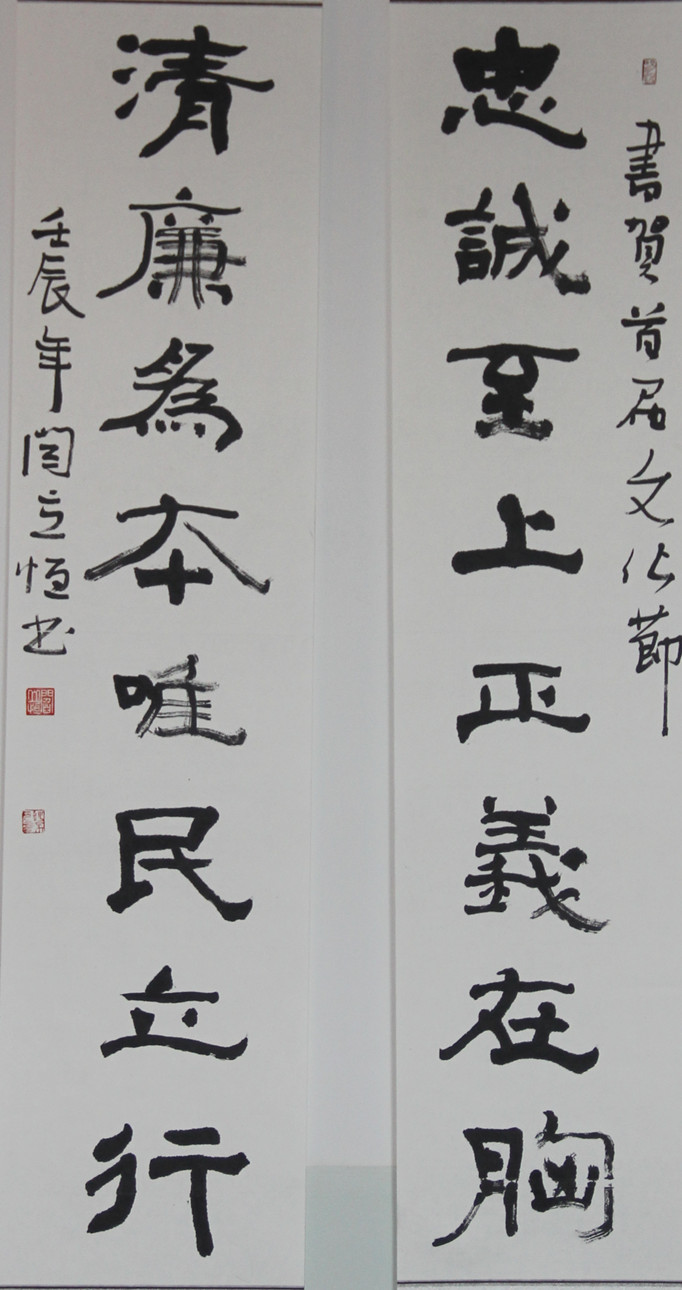 書賀首届文化節
忠誠至上正義在胸
清廉為本唯民立行
壬辰年閆立恒书